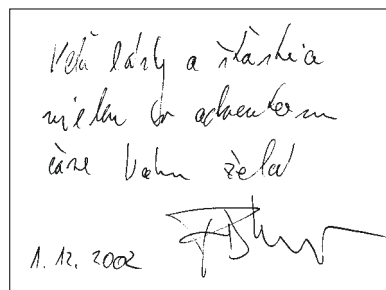 Veľa lásky a šťastia
nielen adventnom
čase Vám želá
1. 12. 2002